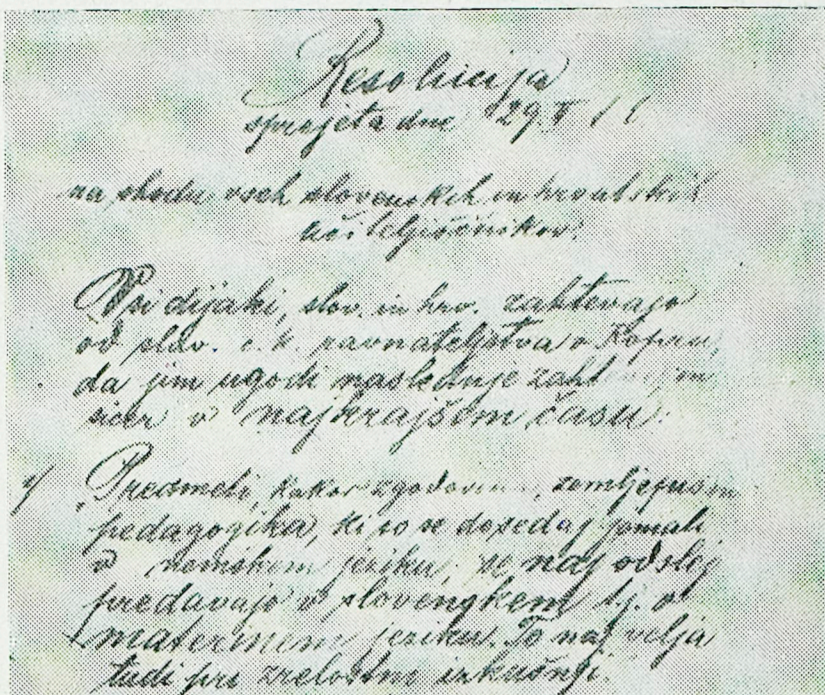 Resolucija
sprejeta dne 29. V
na shodu vseh slovenskih in hrvatskih
učiteljiščnikov.
Vsi dijaki, slov. in hrv. zahtevajo
od slav. c. k. ravnateljstva v Kopru,
da jim ugodi naslednje
sicer v najkrajšem času:
1/ Predmeti, kakor zgodovina, zemljepis in
pedagogika, ki so se dosedaj
v nemškem jeziku, se naj odslej
predavajo v slovenskem t.j. v
maternem jeziku. To naj velja
tudi pri zrelostni izkušnji.